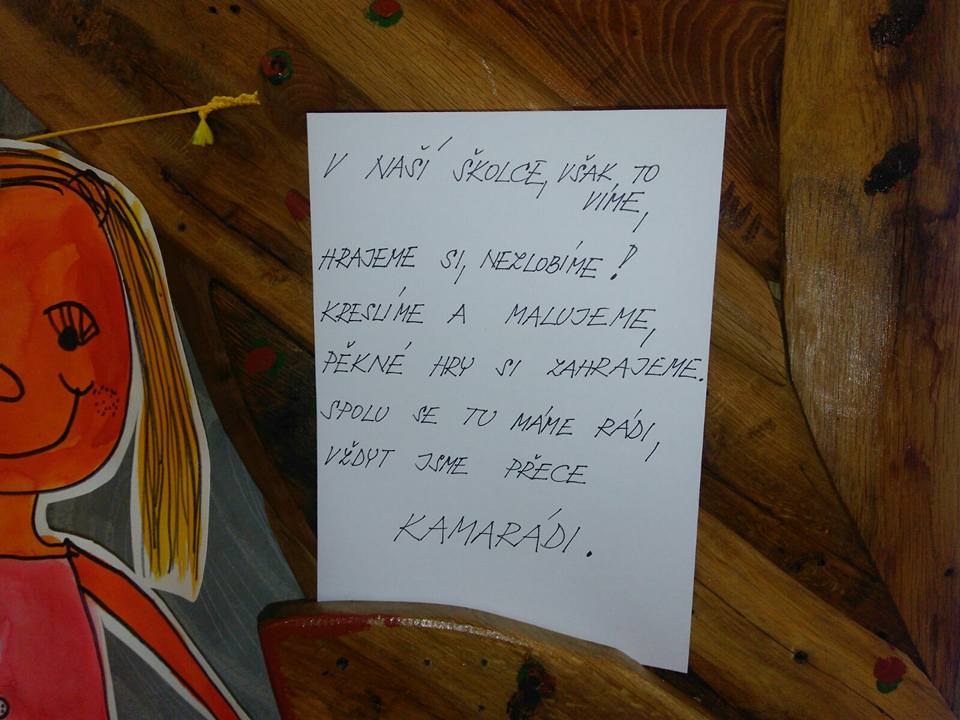 V NAŠÍ ŠKOLCE, VŠAK TO
VÍME,
HRAJEME SI, NEZLOBÍME!
KRESLÍME A MALUJEME,
PĚKNÉ HRY SI ZAHRAJEME.
SPOLU SE TU MÁME RÁDI,
VŽDYT JSME PŘECE
KAMARÁDI.